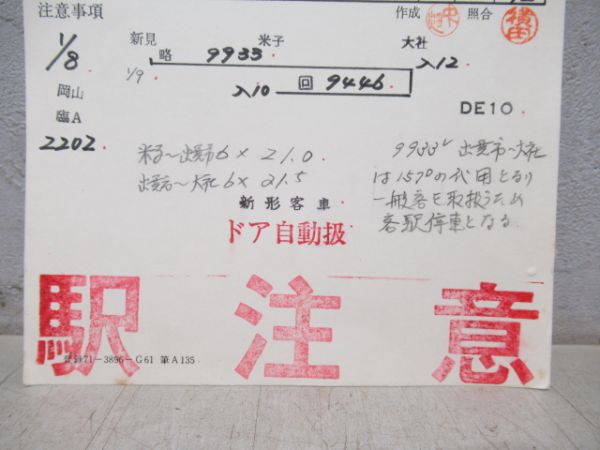 注意事項
作成 照合 横田
新見 米子 大社
1/8 略 9933 入12
1/9 入10 回 9446
岡山
臨A
2202
DE10
米子〜出雲市6× 21.0
出雲市〜大社6× 21.5
9933レ 出雲市〜大社
は157Dの代用となり
一般客を取扱うため
各駅停車となる
新形客車
ドア自動扱
駅注意
登録71-3896-G61 第A135